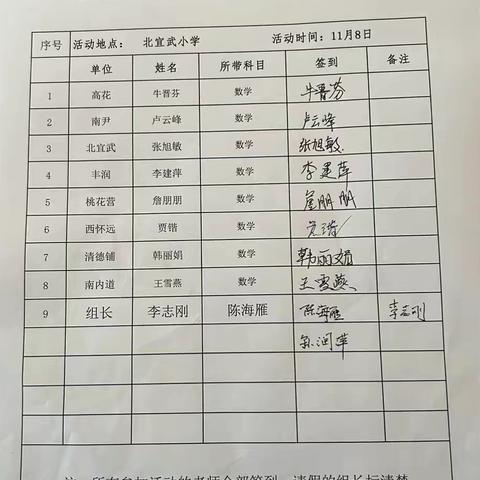 序号 活动地点： 北宜武小学 活动时间：11月8日
单位 姓名 所带科目 签到 备注
1 高花 牛晋芬 数学 牛晋芬
2 南尹 卢云峰 数学 卢云峰
3 北宜武 张旭敏 数学 张旭敏
4 丰润 李建萍 数学 李建萍
5 桃花营 詹朋朋 数学 詹朋朋
6 西怀远 贾锴 数学
7 清德铺 韩丽娟 数学 韩丽娟
8 南内道 王雪燕 数学 王雪燕
9 组长 李志刚 陈海雁 陈海雁 李志刚